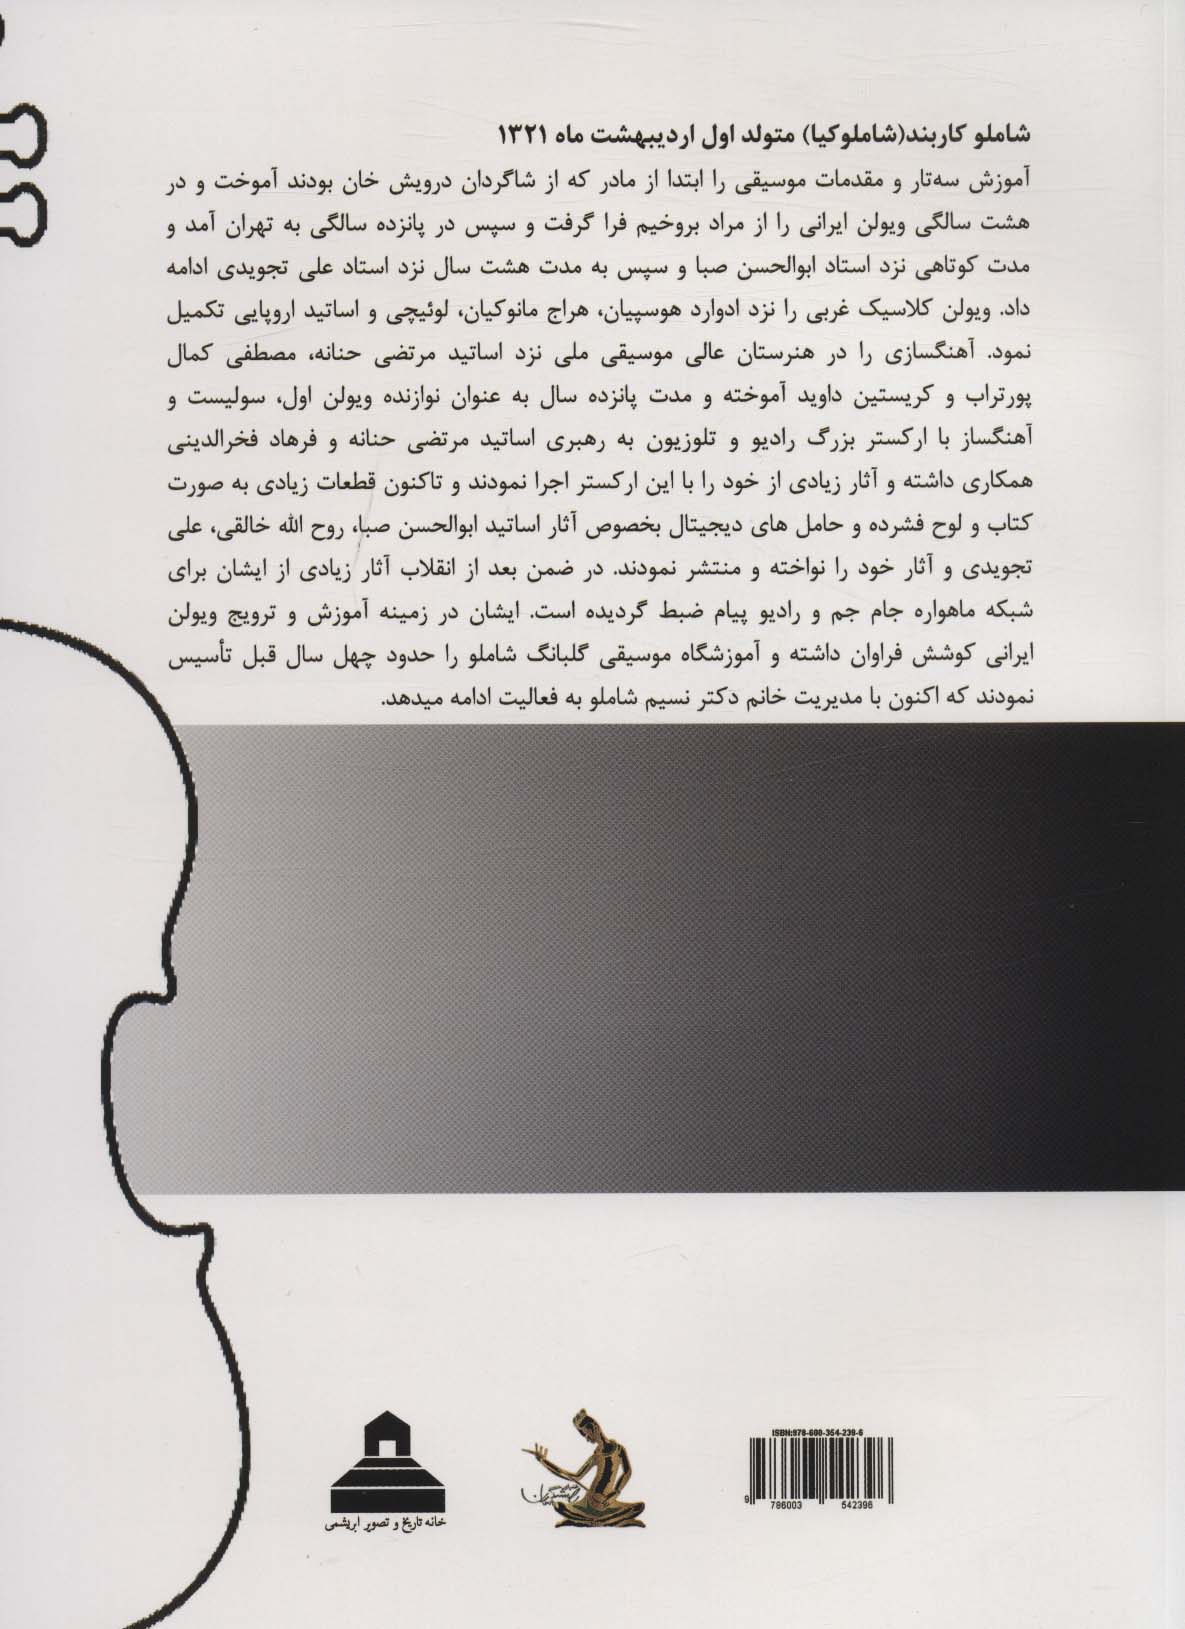 شاملو کاربند(شاملوکیا) متولد اول اردیبهشت ماه ۱۳۲۱
آموزش سه‌تار و مقدمات موسیقی را ابتدا از مادر که از شاگردان درویش خان بودند آموخت و در
هشت سالگی ویولن ایرانی را از مراد بروخیم فرا گرفت و سپس در پانزده سالگی به تهران آمد و
مدت کوتاهی نزد استاد ابوالحسن صبا و سپس به مدت هشت سال نزد استاد علی تجویدی ادامه
داد. ویولن کلاسیک غربی را نزد ادوارد هوسپیان، هراج مانوکیان، لوئیچی و اساتید اروپایی تکمیل
نمود. آهنگسازی را در هنرستان عالی موسیقی ملی نزد اساتید مرتضی حنانه، مصطفی کمال
پورتراب و کریستین داوید آموخته و مدت پانزده سال به عنوان نوازنده ویولن اول، سولیست و
آهنگساز با ارکستر بزرگ رادیو و تلوزیون به رهبری اساتید مرتضی حنانه و فرهاد فخرالدینی
همکاری داشته و آثار زیادی از خود را با این ارکستر اجرا نمودند و تاکنون قطعات زیادی به صورت
کتاب و لوح فشرده و حامل های دیجیتال بخصوص آثار اساتید ابوالحسن صبا، روح الله خالقی، علی
تجویدی و آثار خود را نواخته و منتشر نمودند. در ضمن بعد از انقلاب آثار زیادی از ایشان برای
شبکه ماهواره جام جم و رادیو پیام ضبط گردیده است. ایشان در زمینه آموزش و ترویج ویولن
ایرانی کوشش فراوان داشته و آموزشگاه موسیقی گلبانگ شاملو را حدود چهل سال قبل تأسیس
نمودند که اکنون با مدیریت خانم دکتر نسیم شاملو به فعالیت ادامه میدهد.
ISBN:978-600-354-239-6
9 786003 542396
خانه تاریخ و تصویر ابریشمی